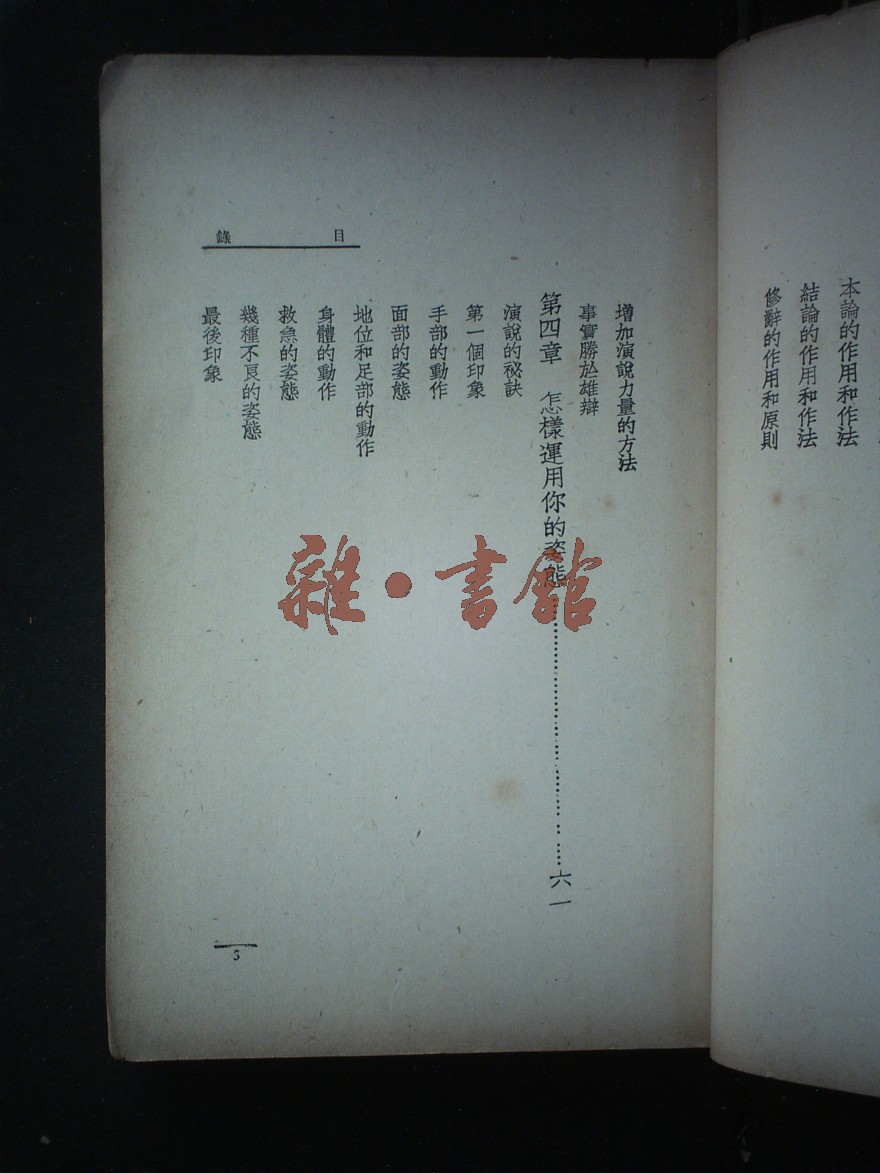 本論的作用和作法
結論的作用和作法
修辭的作用和原則
目錄
增加演說力量的方法
事實勝於雄辯
第四章　怎樣運用你的姿態……………………六一
演說的秘訣
第一個印象
手部的動作
面部的姿態
地位和足部的動作
身體的動作
救急的姿態
幾種不良的姿態
最後印象
3
雜・書館